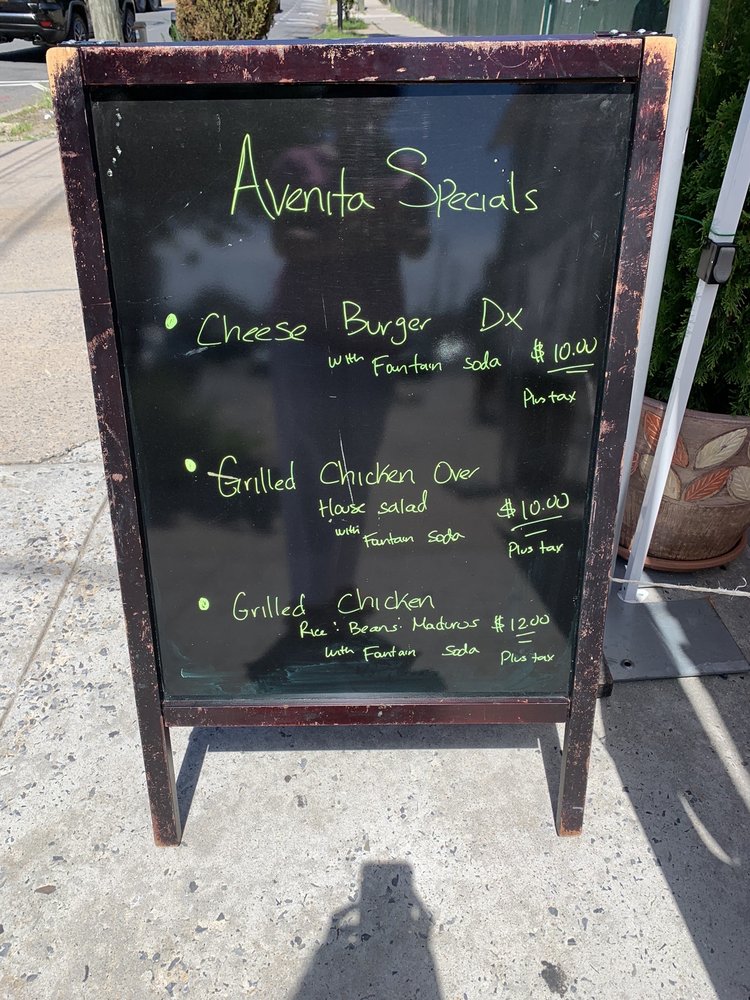 Avenita Specials
• Cheese Burger Dx
with Fountain soda $10.00
Plus tax
• Grilled Chicken Over
House salad $10.00
with Fountain soda Plus tax
• Grilled Chicken
Rice : Beans : Maduros $12.00
with Fountain soda Plus tax